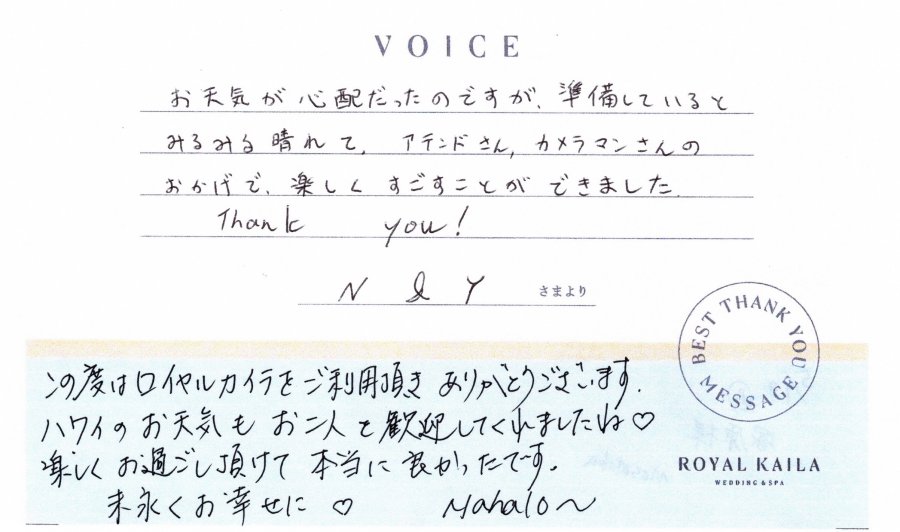 VOICE
お天気が心配だったのですが、準備していると
みるみる晴れて、アテンドさん、カメラマンさんの
おかげで、楽しくすごすことができました。
Thank you!
N & Y さまより
BEST THANK YOU MESSAGE
この度はロイヤルカイラをご利用頂きありがとうございます。
ハワイのお天気もお二人を歓迎してくれましたね♡
楽しくお過ごし頂けて本当に良かったです。
末永くお幸せに♡ Mahalo〜
ROYAL KAILA
WEDDING & SPA